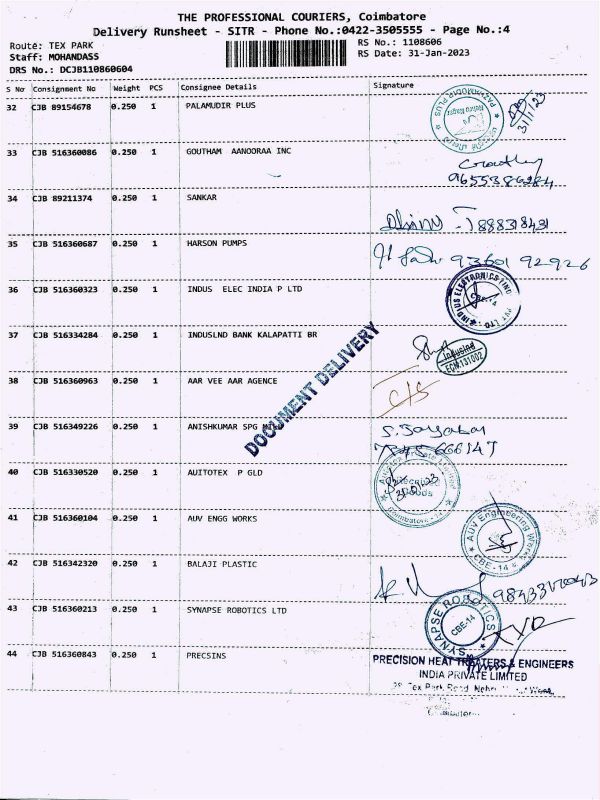 THE PROFESSIONAL COURIERS, Coimbatore
Delivery Runsheet - SITR - Phone No.:0422-3505555 - Page No.:4
Route: TEX PARK
RS No.: 1108606
Staff: MOHANDASS
RS Date: 31-Jan-2023
DRS No.: DCJB110860604
S No Consignment No Weight PCS Consignee Details Signature
32 CJB 89154678 0.250 1 PALAMUDIR PLUS
PAZHAMUDIR PLUS
31/1/23
33 CJB 516360086 0.250 1 GOUTHAM AANOORAA INC
34 CJB 89211374 0.250 1 SANKAR
35 CJB 516360687 0.250 1 HARSON PUMPS
93601 92926
36 CJB 516360323 0.250 1 INDUS ELEC INDIA P LTD
INDUS ELECTRONICS IND PVT LTD
CBE-14
37 CJB 516334284 0.250 1 INDUSLND BANK KALAPATTI BR
IndusInd
ECN:131002
DOCUMENT DELIVERY
38 CJB 516360963 0.250 1 AAR VEE AAR AGENCE
C/S
39 CJB 516349226 0.250 1 ANISHKUMAR SPG MIL
40 CJB 516330520 0.250 1 AUITOTEX P GLD
41 CJB 516360104 0.250 1 AUV ENGG WORKS
AUV Engineering Works
CBE-14
42 CJB 516342320 0.250 1 BALAJI PLASTIC
43 CJB 516360213 0.250 1 SYNAPSE ROBOTICS LTD
SYNAPSE ROBOTICS
CBE-14
44 CJB 516360843 0.250 1 PRECSINS
PRECISION HEAT TREATERS & ENGINEERS
INDIA PRIVATE LIMITED
Tex Park Road